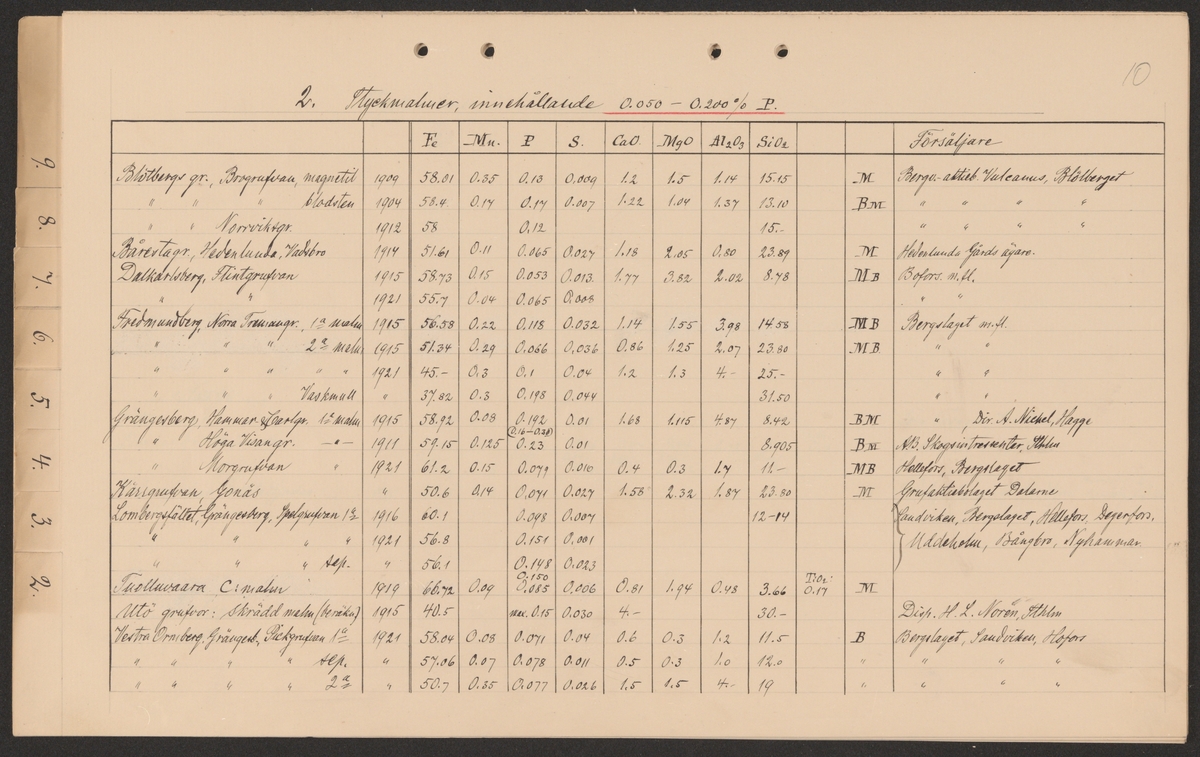 10
2. Styckmalmer, innehållande 0.050 – 0.200 % P.
Fe Mn. P S. CaO MgO Al2O3 SiO2 Försäljare
Blötbergs gr., Brogrufvan, magnetit 1909 58.01 0.35 0.13 0.009 1.2 1.5 1.14 15.15 M Bergv.-aktieb. Vulcanus, Blötberget
" " " blodsten 1904 58.4 0.17 0.17 0.007 1.22 1.04 1.37 13.10 BM " " " "
" " Norrviksgr. 1912 58 0.12 15.- " " " "
Bårestagr, Hedenlunda, Vadsbro 1917 51.61 0.11 0.065 0.027 1.18 2.05 0.80 23.89 M Hedenlunda Gårds ägare.
Dalkarlsberg, Flintgrufvan 1915 58.73 0.15 0.053 0.013 1.77 3.82 2.02 8.78 MB Bofors m.fl.
" " 1921 55.7 0.04 0.065 0.008 " "
Fredmundberg, Norra Tremangr., 1a malm 1915 56.58 0.22 0.118 0.032 1.14 1.55 3.98 14.58 MB Bergslaget m.fl.
" " " 2a malm 1915 51.34 0.29 0.066 0.036 0.86 1.25 2.07 23.80 MB " "
" " " " " 1921 45.- 0.3 0.1 0.04 1.2 1.3 4.- 25.- " "
" " Vaskmull " 37.82 0.3 0.198 0.044 31.50
Grängesberg, Hammar & Carlgr. 1a malm 1915 58.92 0.08 0.192 0.01 1.68 1.115 4.87 8.42 BM " Dir. A. Nickel, Hagge
(0.16–0.38)
" Höga Visan gr. -"- 1911 59.15 0.125 0.23 0.01 8.905 BM AB. Skogsintressenter, Sthlm
" Morgrufvan " 1921 61.2 0.15 0.079 0.010 0.4 0.3 1.7 11.- MB Hellefors, Bergslaget
Kärrgrufvan, Gonäs " 50.6 0.14 0.071 0.027 1.58 2.32 1.87 23.80 M Grufaktiebolaget Dalarne
Lombergsfältet, Grängesberg, Spelgrufvan 1a 1916 60.1 0.098 0.007 12–14 Sandviken, Bergslaget, Hellefors, Degerfors,
" " " " 1921 56.8 0.151 0.001 Uddeholm, Bångbro, Nyhammar
" " " sep. " 56.1 0.148 0.023
0.150
Tuolluvaara C: malm 1919 66.72 0.09 0.085 0.006 0.81 1.94 0.48 3.66 TiO2 0.17 M
Utö grufvor: skrädd malm 1915 40.5 max. 0.15 0.030 4.- 30.- Disp. H. L. Norén, Sthlm
Vestra Ormberg, Grängesb., Pickgrufvan 1a 1921 58.04 0.08 0.071 0.04 0.6 0.3 1.2 11.5 B Bergslaget, Sandviken, Hofors
" " " " sep. " 57.06 0.07 0.078 0.011 0.5 0.3 1.0 12.0 " " " "
" " " " 2a " 50.7 0.35 0.077 0.026 1.5 1.5 4.- 19 " " " "
9.
8.
7.
6.
5.
4.
3.
2.